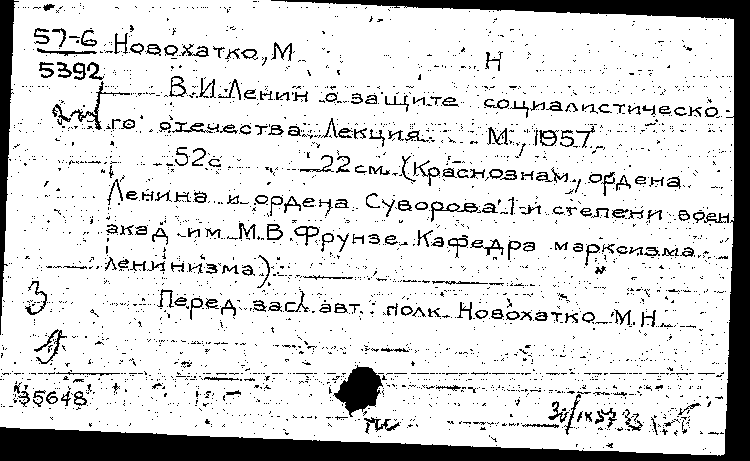 57-6 Новохатко, М
5392 Н
В.И.Ленин о защите социалистическо-
го отечества. Лекция. М., 1957.
52с 22см. (Краснознам., ордена
Ленина и ордена Суворова 1-й степени воен.
акад им М.В.Фрунзе. Кафедра марксизма-
ленинизма).
Перед загл. авт.: полк. Новохатко М.Н.
З
35648